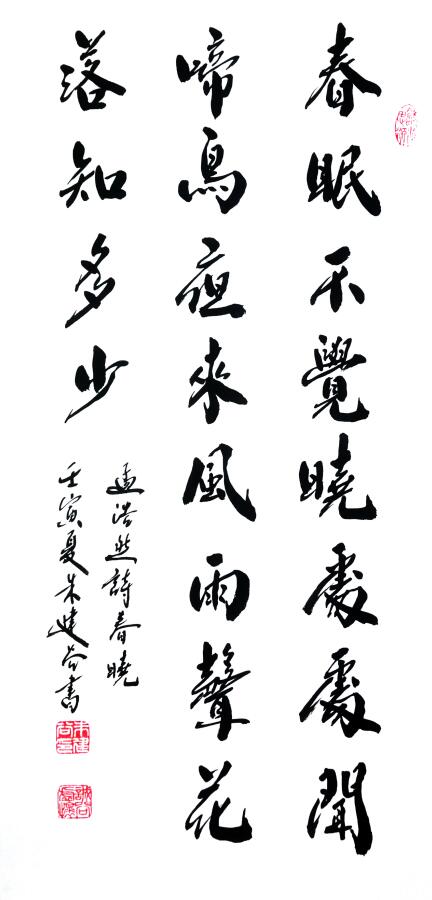 春眠不覺曉處處聞
啼鳥夜來風雨聲花
落知多少
孟浩然詩春曉
壬寅夏朱建書